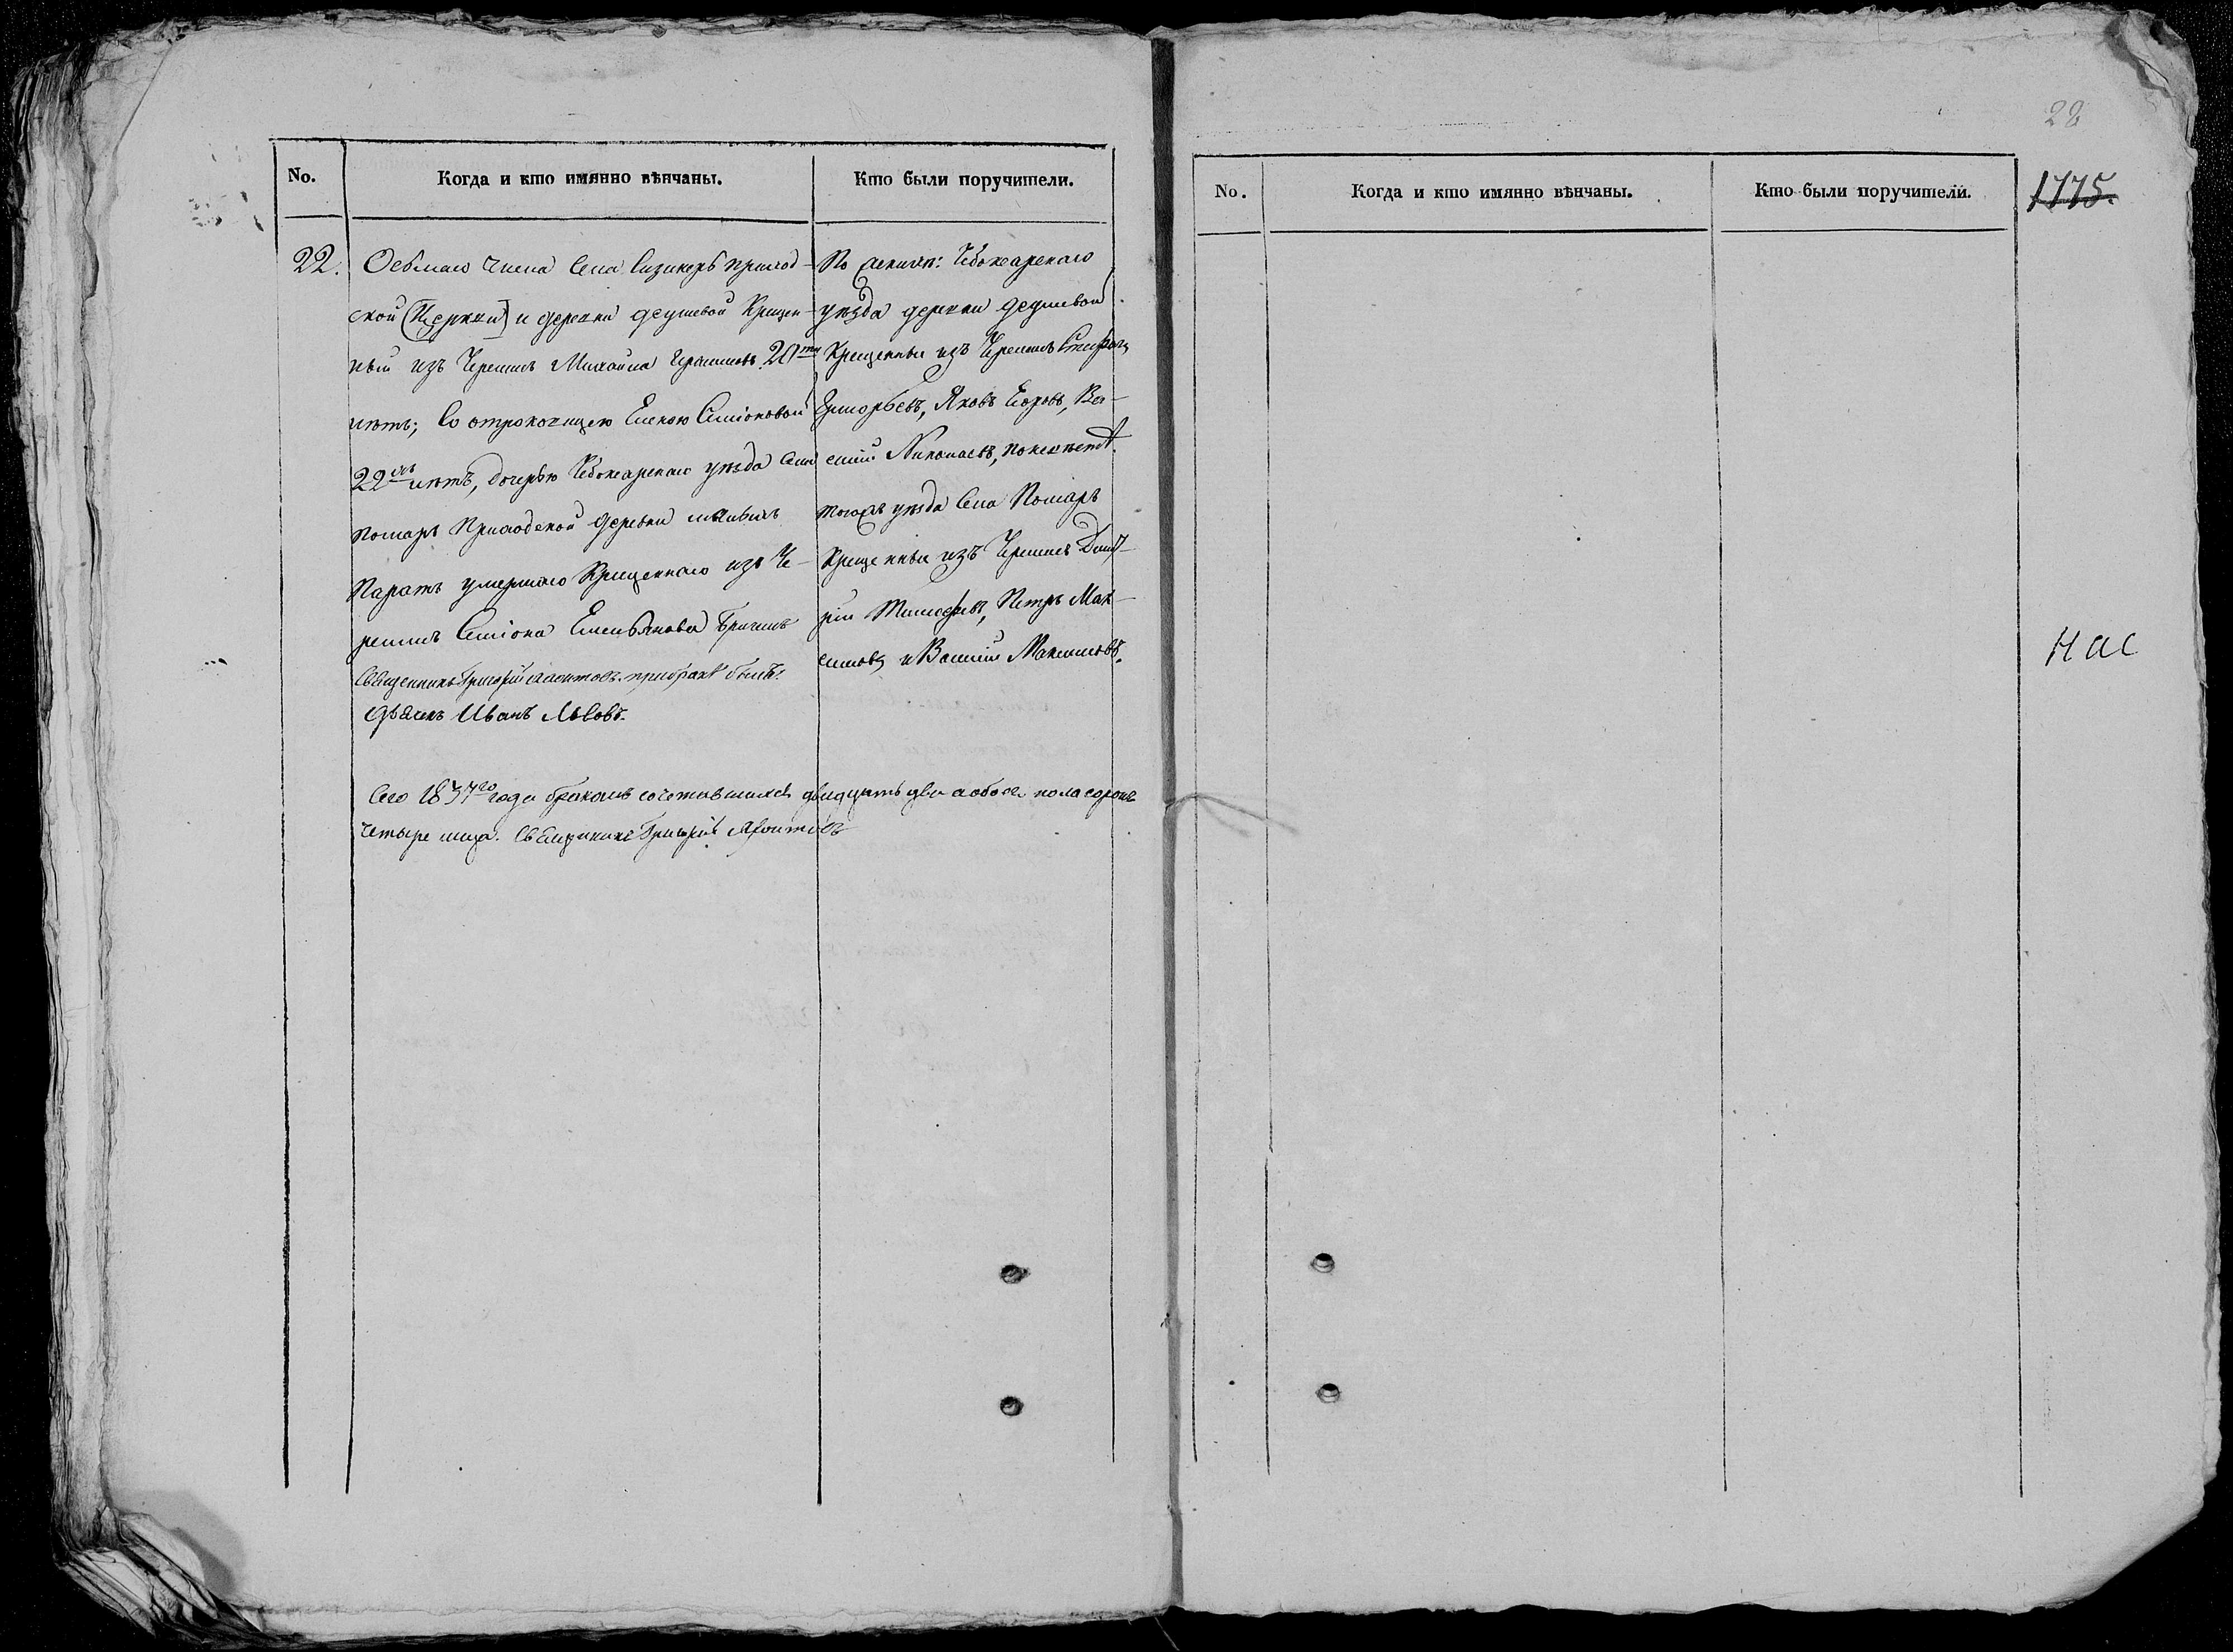 No.
Когда и кто имянно вѣнчаны.
Кто были поручители.
22.
Осьмаго Числа Села приход-
ской (Церкви) и деревни Крещен-
ный изъ Черемисъ Михайла 20ти
лѣтъ; Со отроковицею Еленою Симіоновой
22хъ лѣтъ, дочерью Чебоксарскаго уѣзда Села
Помаръ Приходской деревни
Паратъ умершаго Крещеннаго изъ Че-
ремисъ Симіона Емельянова
Священникъ Григорій при бракѣ былъ.
Дьячекъ Иванъ Львовъ.
По женихѣ: Чебоксарскаго
уѣзда деревни
Крещенные изъ Черемисъ
Григорьевъ, Яковъ Егоровъ, Ва-
силій Николаевъ, по невѣстѣ
тогожъ уѣзда Села Помаръ
Крещенные изъ Черемисъ Дмит-
рій Тимофеевъ, Петръ Мак-
симовъ и Василій Максимовъ.
Сего 1837го года бракомъ сочетавшихся двадцать два а обоего пола сорокъ
четыре лица. Священникъ Григорій
28
No.
Когда и кто имянно вѣнчаны.
Кто были поручители.
1775.